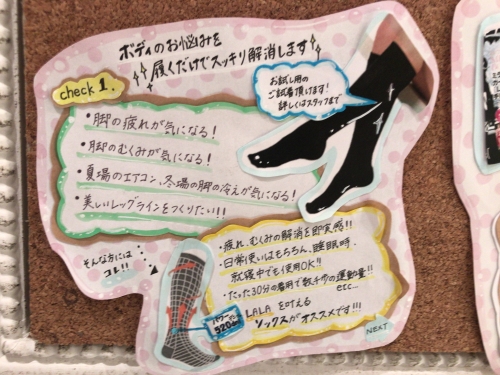 ボディのお悩みを
履くだけでスッキリ解消します
check 1.
お試し用の
ご試着頂けます!
詳しくはスタッフまで
・脚の疲れが気になる!
・脚のむくみが気になる!
・夏場のエアコン、冬場の脚の冷えが気になる!
・美しいレッグラインをつくりたい!!
そんな方には
コレ!!
・疲れ、むくみの解消を即実感!!
・日常使いはもちろん、睡眠時、
就寝中でも使用OK!!
・たった30分の着用で数千歩の運動量!!
etc...
LALA を叶える
ソックスがオススメです!!!
パワー
920
NEXT